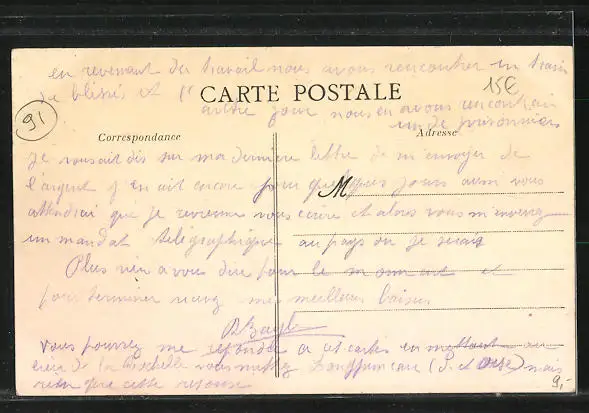 en revenant du travail nous avons rencontrer un train
de blessés et l'
15€
CARTE POSTALE
autre jour nous en avons rencontrair
un de prisonniers
91
Correspondance
Adresse
Je vous ait dis sur ma dernière lettre de m'envoyer de
l'argent j'en ait encore pour quelques jours aussi vous
M
attendrai que je revienne vous écrire et alors vous m'enverez
un mandat télégraphique au pays ou je serais
Plus rien a vous dire pour le moment et
pour terminer recevez mes meilleurs baisers
Vous pourrez me repondre a cet cartes en mettant au
lieu de la Rochelle vous mettez (S. et Oise) mais
rien que cette reponse
9,-